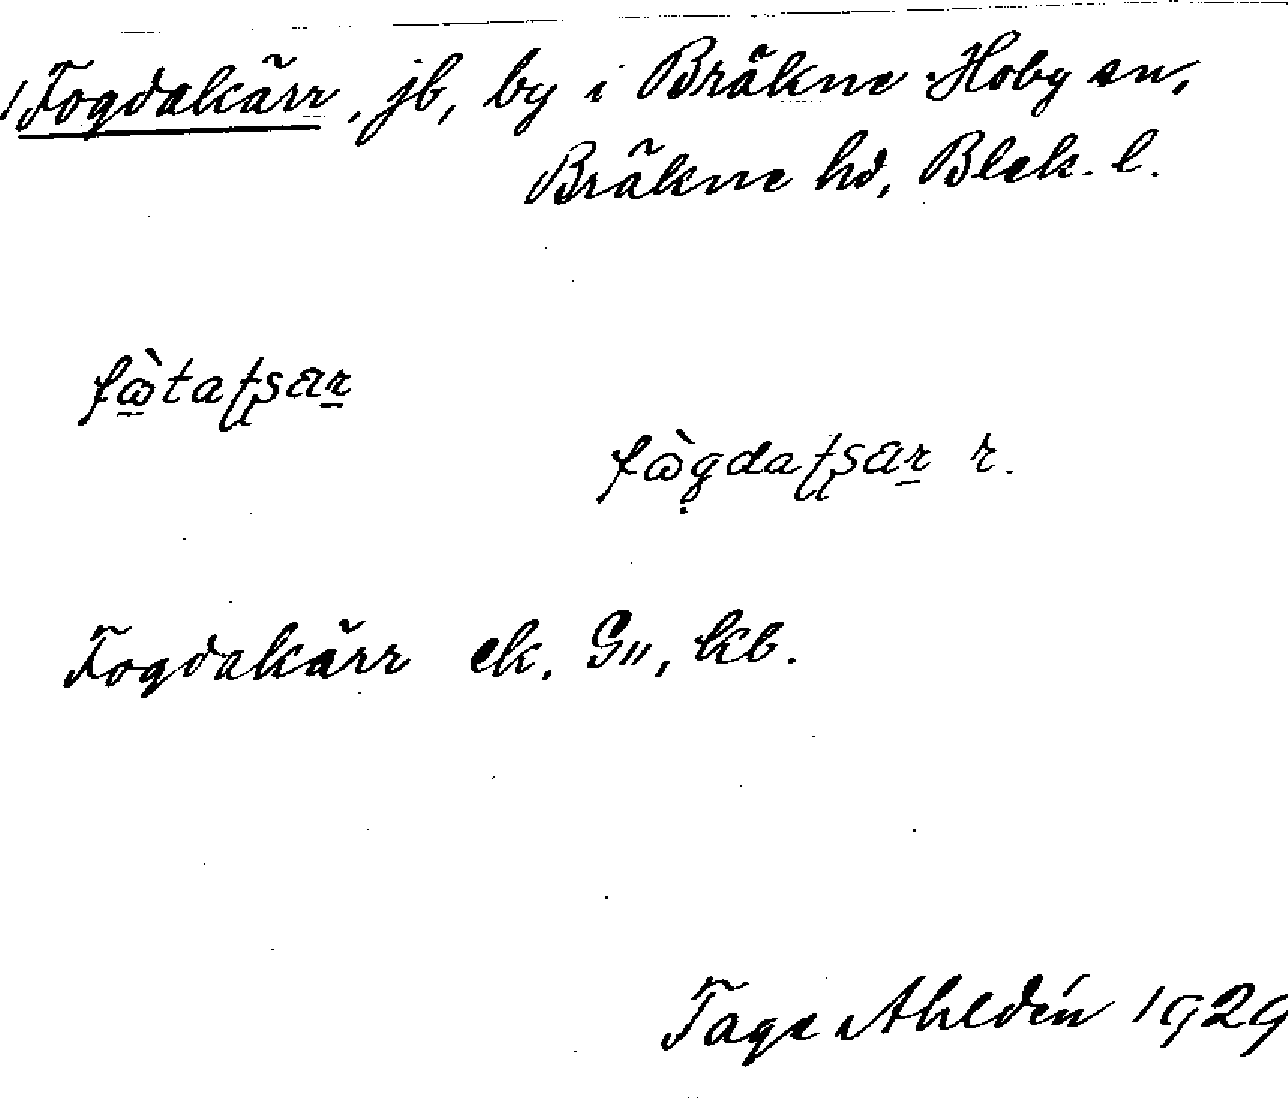 Fogdakärr, jb, by i Bräkne Hoby sn,
Bräkne hd, Blek. l.
fὼtatʂar
fὼgdatʂar r.
Fogdakärr ek. G", kb.
Tage Ahldén 1929